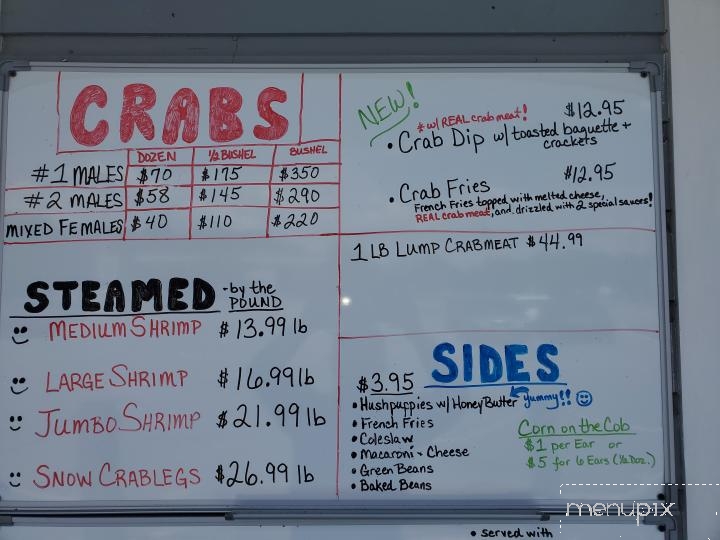 CRABS
DOZEN ½ BUSHEL BUSHEL
#1 MALES $70 $175 $350
#2 MALES $58 $145 $290
MIXED FEMALES $40 $110 $220
STEAMED -by the
POUND
MEDIUM SHRIMP $13.99 lb
LARGE SHRIMP $16.99 lb
JUMBO SHRIMP $21.99 lb
SNOW CRABLEGS $26.99 lb
NEW!
* w/ REAL crab meat! $12.95
• Crab Dip w/ toasted baguette +
crackets
$12.95
• Crab Fries
French Fries topped with melted cheese,
REAL crab meat, and drizzled with 2 special sauces!
1 LB LUMP CRABMEAT $44.99
SIDES
$3.95
• Hushpuppies w/ Honey Butter yummy!!
• French Fries
• Coleslaw
• Macaroni + Cheese
• Green Beans
• Baked Beans
Corn on the Cob
$1 per Ear or
$5 for 6 Ears (½ Doz.)
menupix
• served with